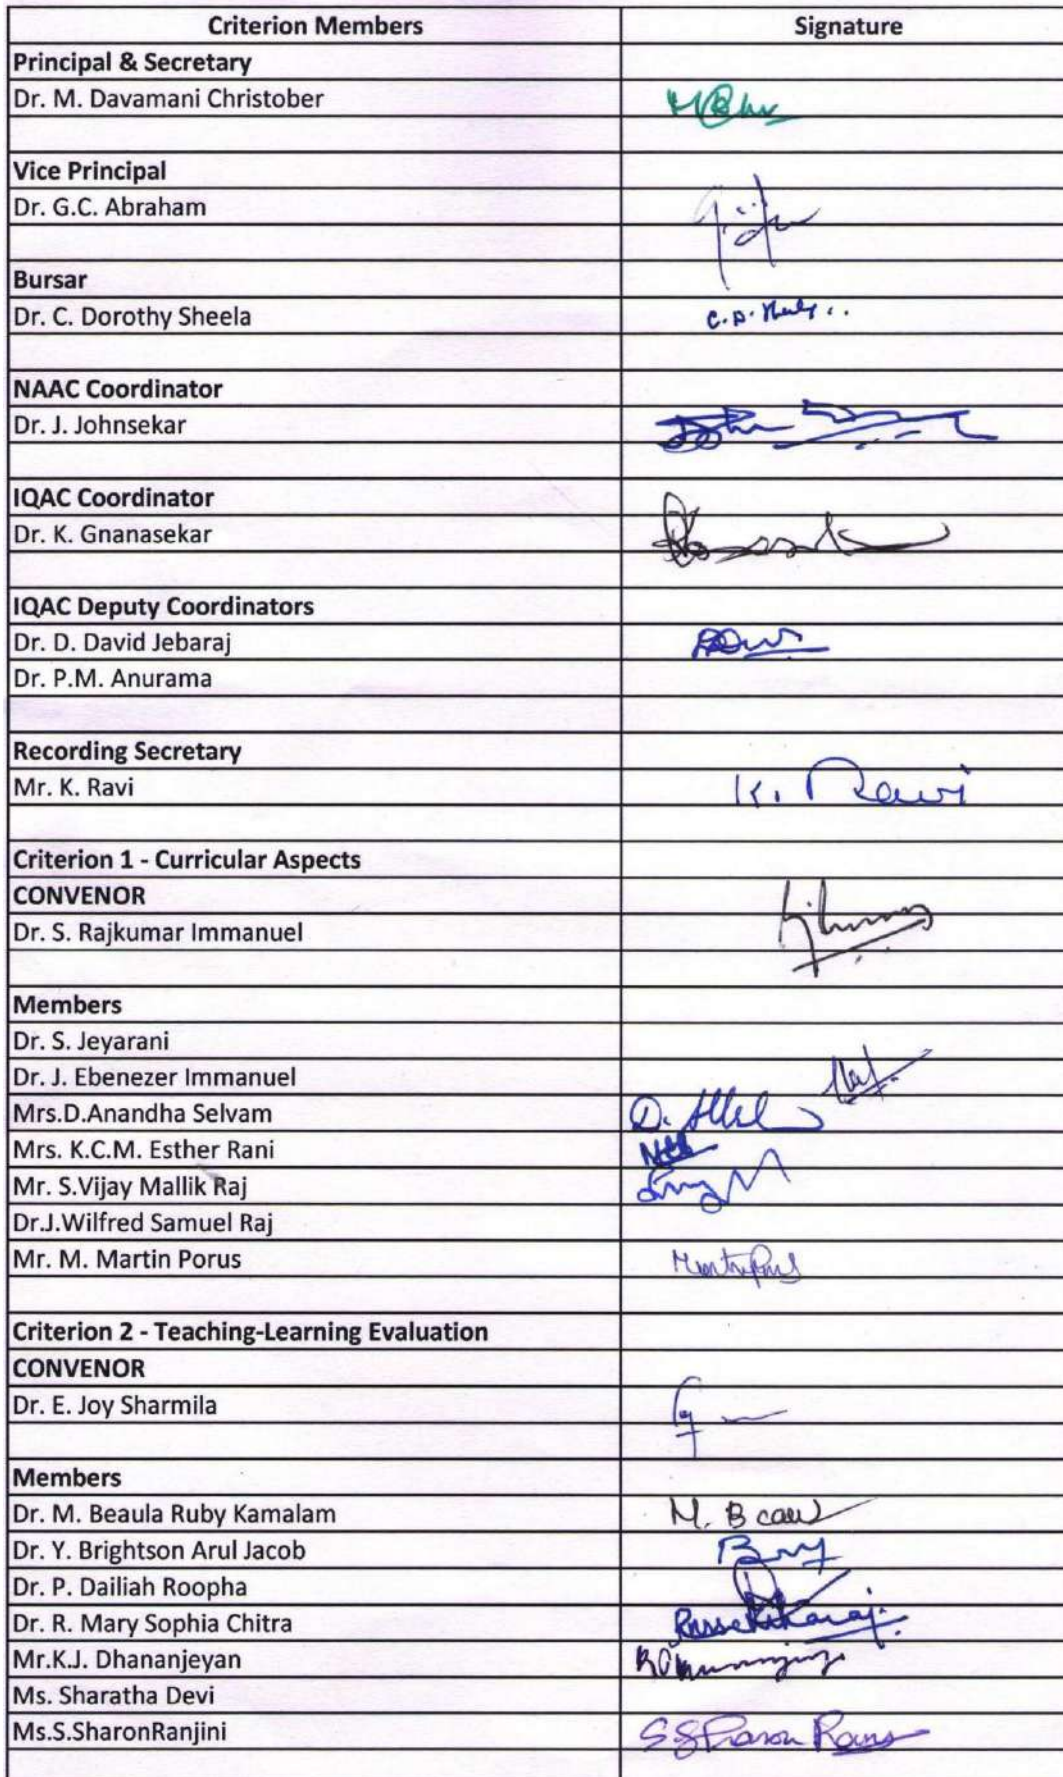 Criterion Members Signature
Principal & Secretary
Dr. M. Davamani Christober
Vice Principal
Dr. G.C. Abraham
Bursar
Dr. C. Dorothy Sheela
NAAC Coordinator
Dr. J. Johnsekar
IQAC Coordinator
Dr. K. Gnanasekar
IQAC Deputy Coordinators
Dr. D. David Jebaraj
Dr. P.M. Anurama
Recording Secretary
Mr. K. Ravi K. Ravi
Criterion 1 - Curricular Aspects
CONVENOR
Dr. S. Rajkumar Immanuel
Members
Dr. S. Jeyarani
Dr. J. Ebenezer Immanuel
Mrs.D.Anandha Selvam
Mrs. K.C.M. Esther Rani
Mr. S.Vijay Mallik Raj
Dr.J.Wilfred Samuel Raj
Mr. M. Martin Porus
Criterion 2 - Teaching-Learning Evaluation
CONVENOR
Dr. E. Joy Sharmila
Members
Dr. M. Beaula Ruby Kamalam
Dr. Y. Brightson Arul Jacob
Dr. P. Dailiah Roopha
Dr. R. Mary Sophia Chitra
Mr.K.J. Dhananjeyan
Ms. Sharatha Devi
Ms.S.SharonRanjini